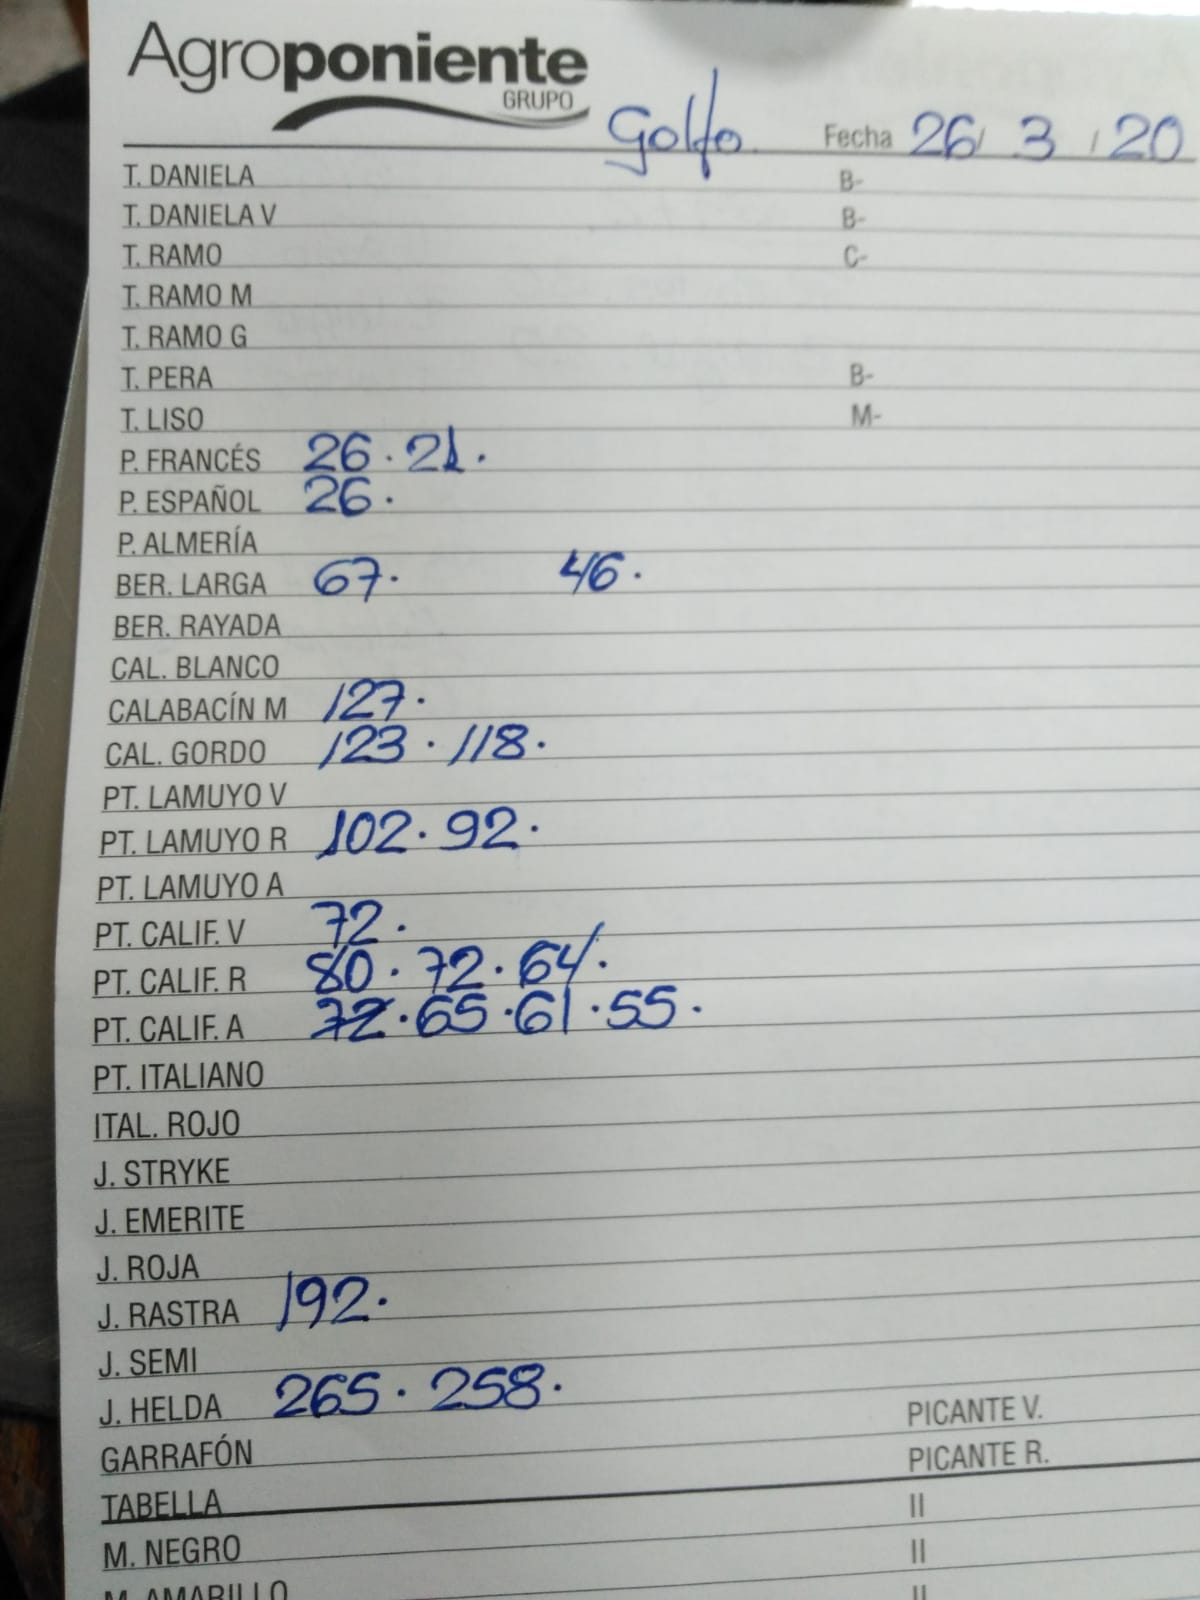 Agroponiente
GRUPO
Golfo Fecha 26/ 3 / 20
T. DANIELA B-
T. DANIELA V B-
T. RAMO C-
T. RAMO M
T. RAMO G
T. PERA B-
T. LISO M-
P. FRANCÉS 26 · 21 ·
P. ESPAÑOL 26 ·
P. ALMERÍA
BER. LARGA 67 · 46 ·
BER. RAYADA
CAL. BLANCO
CALABACÍN M 127 ·
CAL. GORDO 123 · 118 ·
PT. LAMUYO V
PT. LAMUYO R 102 · 92 ·
PT. LAMUYO A
PT. CALIF. V 72 ·
PT. CALIF. R 80 · 72 · 64 ·
PT. CALIF. A 72 · 65 · 61 · 55 ·
PT. ITALIANO
ITAL. ROJO
J. STRYKE
J. EMERITE
J. ROJA
J. RASTRA 192 ·
J. SEMI
J. HELDA 265 · 258 ·
PICANTE V.
GARRAFÓN PICANTE R.
TABELLA II
M. NEGRO II
M. AMARILLO II